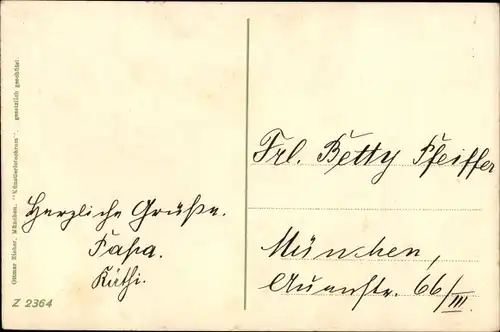 Ottmar Zieher, München. "Künstlerlichtdruck". gesetzlich geschützt.
Herzliche Grüße.
Papa.
Käthi.
Z 2364
Frl. Betty Pfeiffer
München,
Auenstr. 66/III